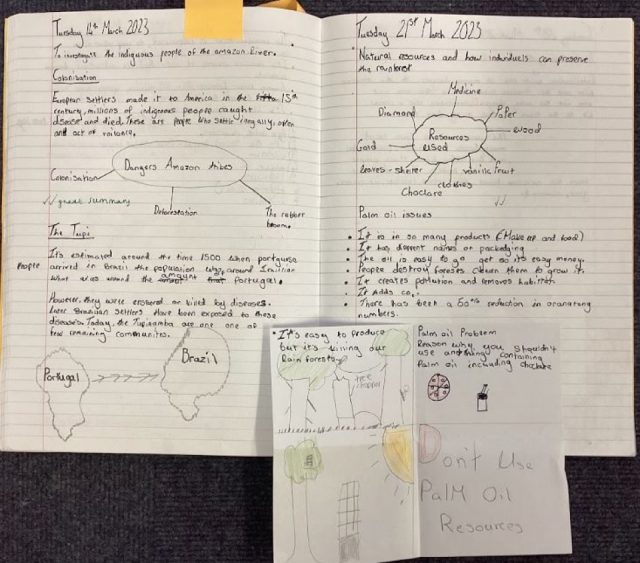 Tuesday 14th March 2023
To investigate the indiguous people of the amazon River.
Colonisation
European settlers made it to America in the 15th
century, millions of indigenous people caught
disease and died. These are people who settle
and act of voilance.
Dangers Amazon tribes
Colonisation
Deforestation
The rubber
boom.
great summary
The Tupi
It's estimated around the time 1500 when portguise
People
arrived in Brazil the population was around 1 million
what was around the amount that Portugal.
However, they were enslaved or killed by diseases.
Later Brazilian settlers have been exposed to these
diseases. Today, the Tupinamba are one one of
few remaining communites.
Portugal
Brazil
Tuesday 21st March 2023
Natural resources and how induviduals can preserve
the rainforest
Medicine
Diamond
Paper
wood
Resources
used
Gold
leaves - shelter
vanilla, fruit
clothes
Choclate
Palm oil issues
It is in so many products (Make up and food)
It has different names on packedging
The oil is easy to get so its easy money.
People destroy forests to grow it.
It creates pollution and removes habitats.
It adds co2
There has been a 60% reduction in orangatang
numbers.
It's easy to produce
but it's killing our
Rain forests
tree
chopped
Palm oil Problem
Reason why you shouldn't
use anything containing
Palm oil including choclate
Don't Use
Palm Oil
Resources